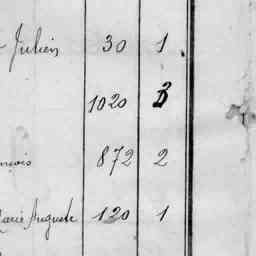 Julien 30 1
1020 3
nçois 872 2
Marie Auguste 120 1